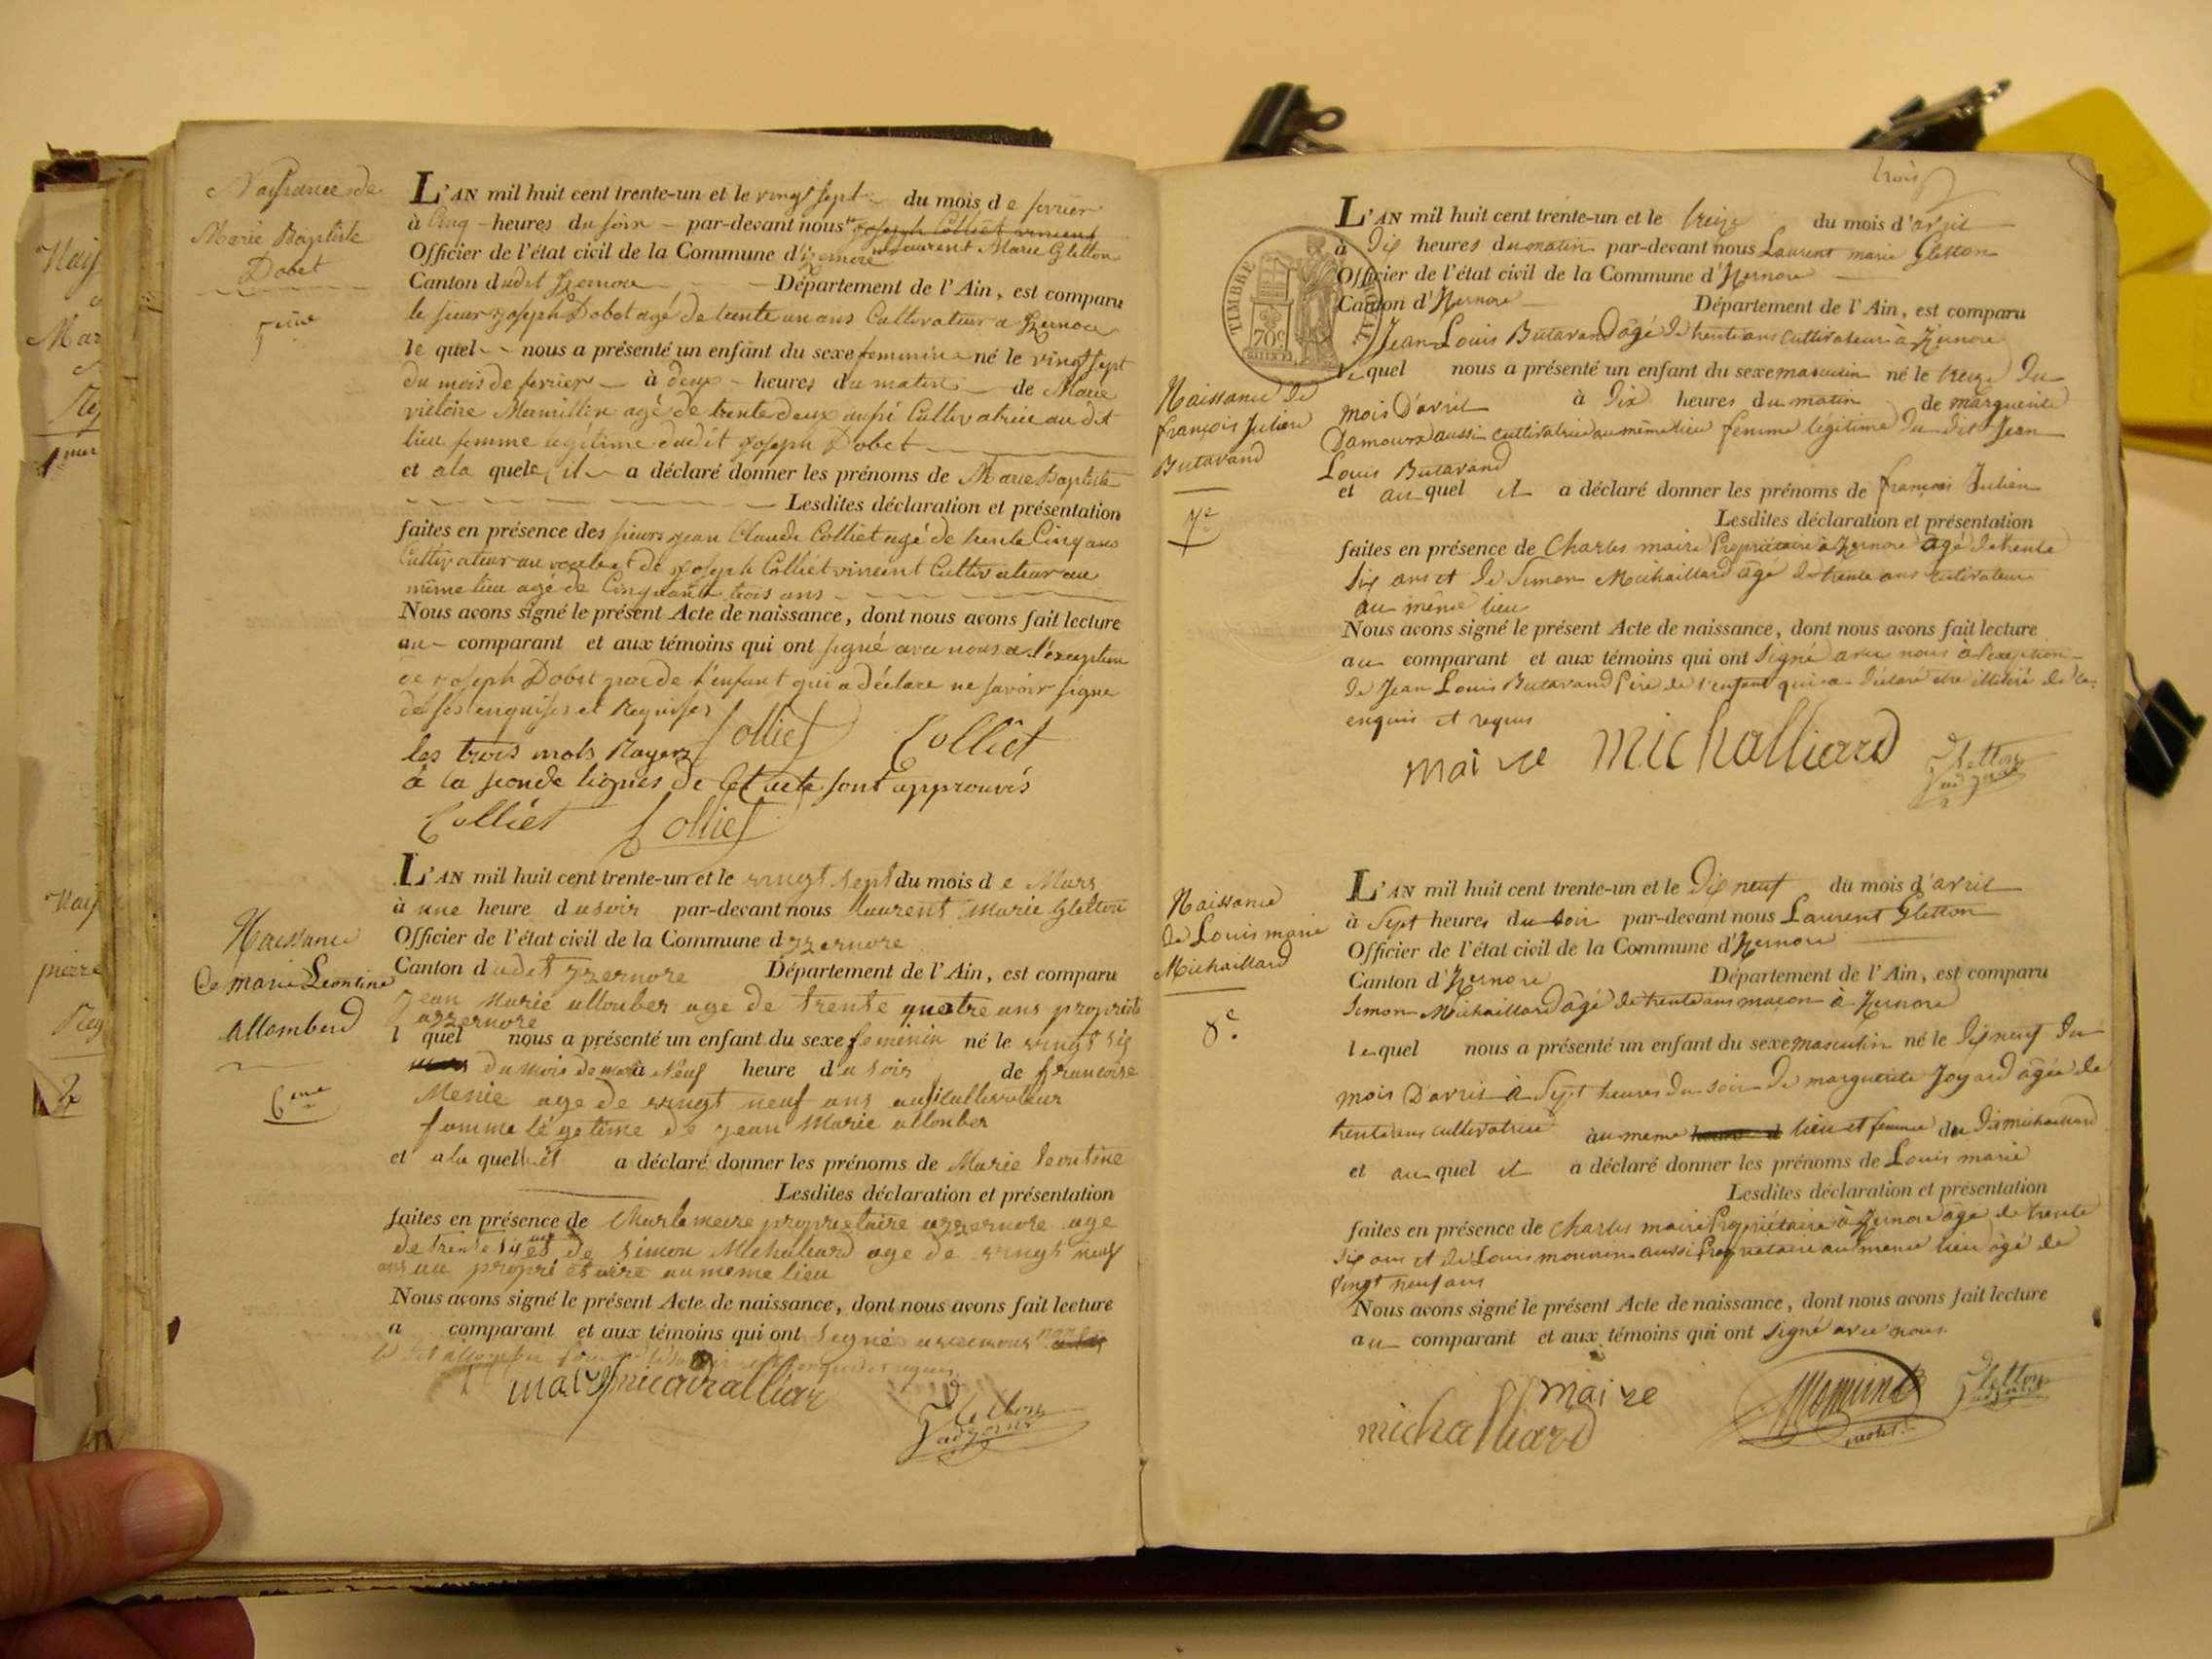 Naissance de
Marie Baptiste
Dobet
5eme
L'AN mil huit cent trente-un et le vingt sept du mois de fevrier
à Cinq heures du soir par-devant nous Joseph Colliet vincent
Laurent Marie Gletton
Officier de l'état civil de la Commune d'izernore
Canton dudit Izernore Département de l'Ain, est comparu
le sieur Joseph Dobet agé de trente un ans Cultivateur a Izernore
le quel nous a présenté un enfant du sexe feminin né le vingt sept
du mois de fevrier à deux heures du matin de Marie
victoire Mermillin agé de trente deux aussi Cultivatrice au dit
lieu femme legitime dudit Joseph Dobet
et a la quele il a déclaré donner les prénoms de Marie Baptiste
Lesdites déclaration et présentation
faites en présence des sieurs jean Claude Colliet agé de trente Cinq ans
Cultivateur au et de Joseph Colliet vincent Cultivateur au
même lieu agé de Cinquante trois ans
Nous avons signé le présent Acte de naissance, dont nous avons fait lecture
au comparant et aux témoins qui ont signé avec nous a l'exception
de Joseph Dobet père de l'enfant qui a déclare ne savoir signe
de ses enquises et Requises
les trois mots Rayers Colliet Colliet
à la seconde lignes de Cet acte sont approuvés
Colliet Colliet
Naissance
de marie Leontine
Allombert
6eme
L'AN mil huit cent trente-un et le vingt sept du mois de Mars
à une heure du soir par-devant nous laurent marie Gletton
Officier de l'état civil de la Commune dyzernore
Canton dudit yzernore Département de l'Ain, est comparu
jean Marie allonber age de trente quatre ans
azzernore
l quel nous a présenté un enfant du sexe feminin né le vingt six
du mois de mars à Neuf heure du soir de francoise
Menie age de vingt neuf ans aussi cultivateur
famme légetime de jean Marie allonber
et a la quelle il a déclaré donner les prénoms de Marie leontine
Lesdites déclaration et présentation
faites en présence de Charle meire proprietaire azzernore age
de trente six ans et de simon Michaliard age de vingt neuf
ans au propriétaire au meme lieu
Nous avons signé le présent Acte de naissance, dont nous avons fait lecture
a comparant et aux témoins qui ont signé avec nous
maire michalliar
Gletton
adjoint
trois
TIMBRE ROYAL
70c
Naissance de
françois Julien
Butavand
7e
L'AN mil huit cent trente-un et le treize du mois d'avril
à Dix heures du matin par-devant nous Laurent marie Gletton
Officier de l'état civil de la Commune d'Izernore
Canton d'Izernore Département de l'Ain, est comparu
Jean Louis Butavand âgé de trente ans cultivateur à Izernore
lequel nous a présenté un enfant du sexe masculin né le treize du
mois D'avril à Dix heures du matin de marguerite
Damoura aussi cultivatrice au même lieu femme légitime du dit Jean
Louis Butavand
et au quel il a déclaré donner les prénoms de françois Julien
Lesdites déclaration et présentation
faites en présence de Charles maire Propriétaire à Izernore agé de trente
six ans et de Simon Michaillard agé de trente ans cultivateur
au même lieu
Nous avons signé le présent Acte de naissance, dont nous avons fait lecture
au comparant et aux témoins qui ont Signé avec nous à l'exception
de Jean Louis Butavand Père de l'enfant qui a déclaré etre illitéré de ce
enquis et requis
maire michalliard Gletton
adjoint
Naissance
de Louis marie
Michaillard
8e
L'AN mil huit cent trente-un et le Dix neuf du mois d'avril
à Sept heures du soir par-devant nous Laurent Gletton
Officier de l'état civil de la Commune d'Izernore
Canton d'Izernore Département de l'Ain, est comparu
Simon Michaillard âgé de trente ans maçon à Izernore
lequel nous a présenté un enfant du sexe masculin né le Dix neuf du
mois D'avril à Sept heures du soir De marguerite Joyard âgée de
trente ans cultivatrice au meme lieu et femme du dit michaillard
et au quel il a déclaré donner les prénoms de Louis marie
Lesdites déclaration et présentation
faites en présence de Charles maire Propriétaire à Izernore âgé de trente
six ans et de Louis mounin aussi Propriétaire au meme lieu âgé de
vingt neuf ans
Nous avons signé le présent Acte de naissance, dont nous avons fait lecture
au comparant et aux témoins qui ont Signé avec nous.
michalliard maire Gletton
adjoint